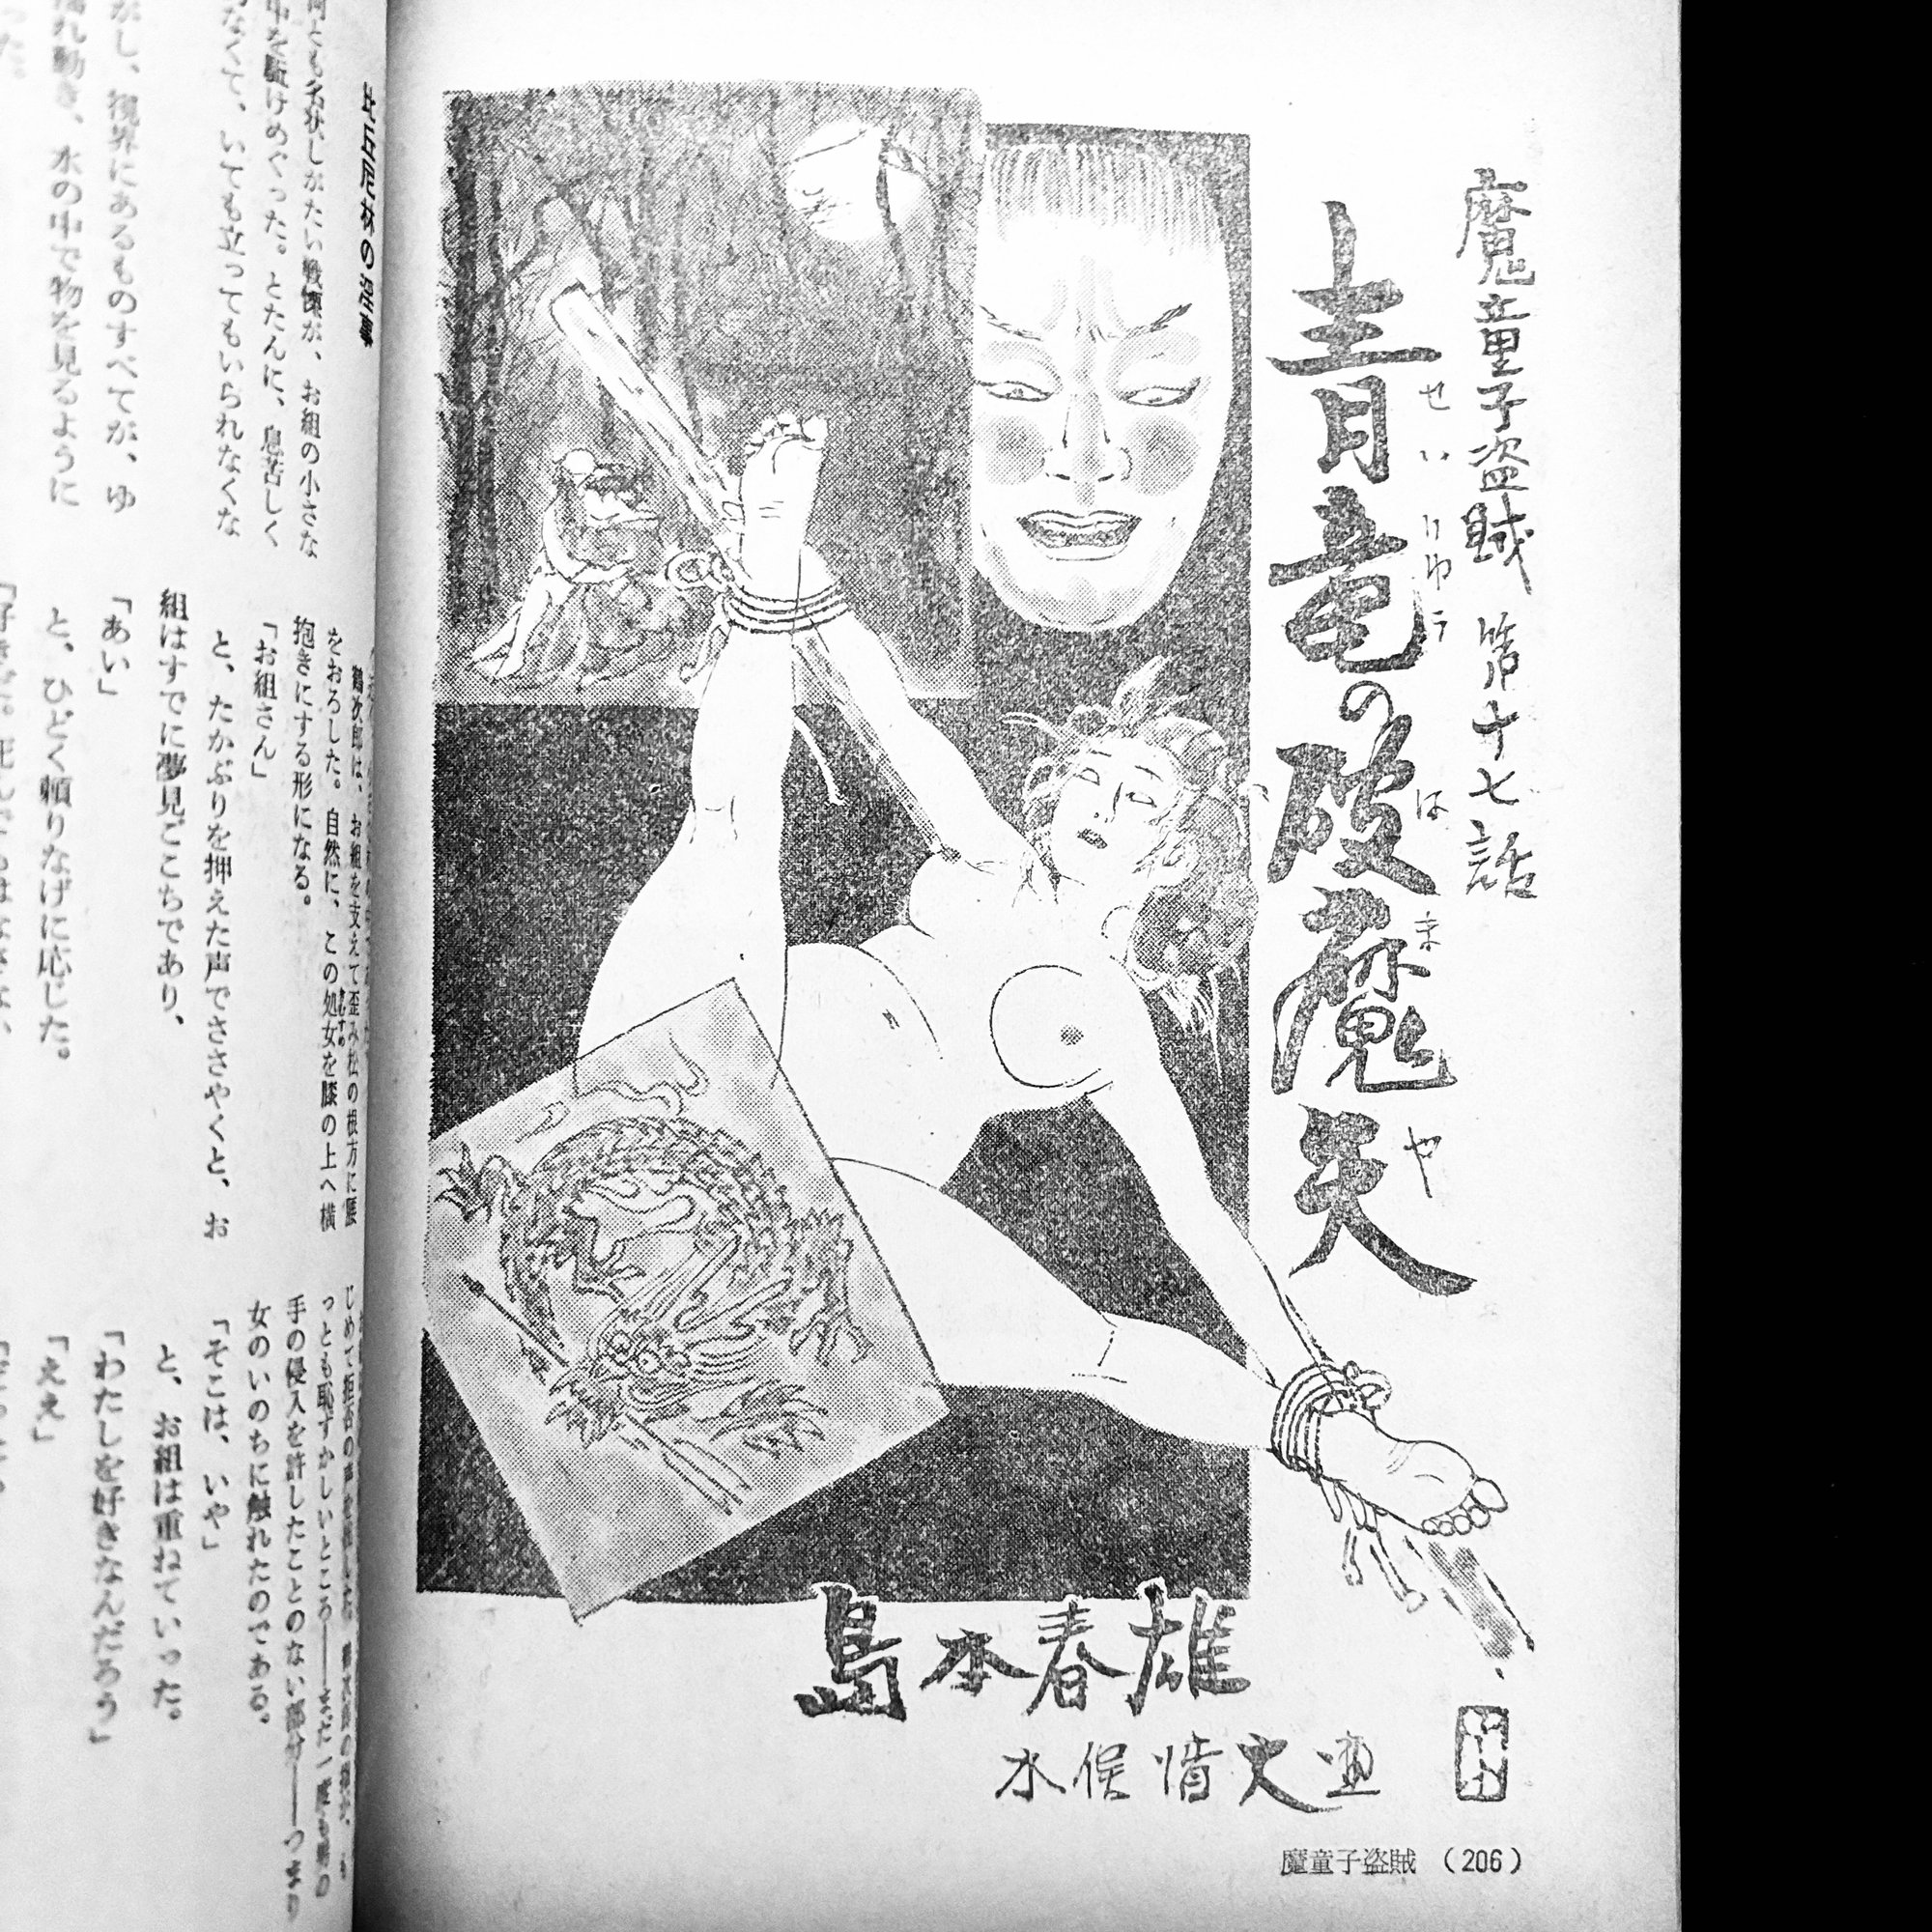 魔童子盗賊 第十七話
青竜の破魔矢
せいりゅう
はまや
島本春雄
水俣 画
魔童子盗賊 (206)
比丘尼林の淫事
鶴次郎は、お組を支えて歪み松の根方に腰
をおろした。自然に、この処女を膝の上へ横
抱きにする形になる。
「お組さん」
と、たかぶりを押えた声でささやくと、お
組はすでに夢見ごこちであり、
「あい」
と、ひどく頼りなげに応じた。
手の侵入を許したことのない部分――つまり
女のいのちに触れたのである。
「そこは、いや」
と、お組は重ねていった。
「わたしを好きなんだろう」
「ええ」
何とも名状しがたい戦慄が、お組の小さな
中を駈けめぐった。とたんに、息苦しく
なくて、いても立ってもいられなくな
かし、視界にあるものすべてが、ゆ
揺れ動き、水の中で物を見るように
った。